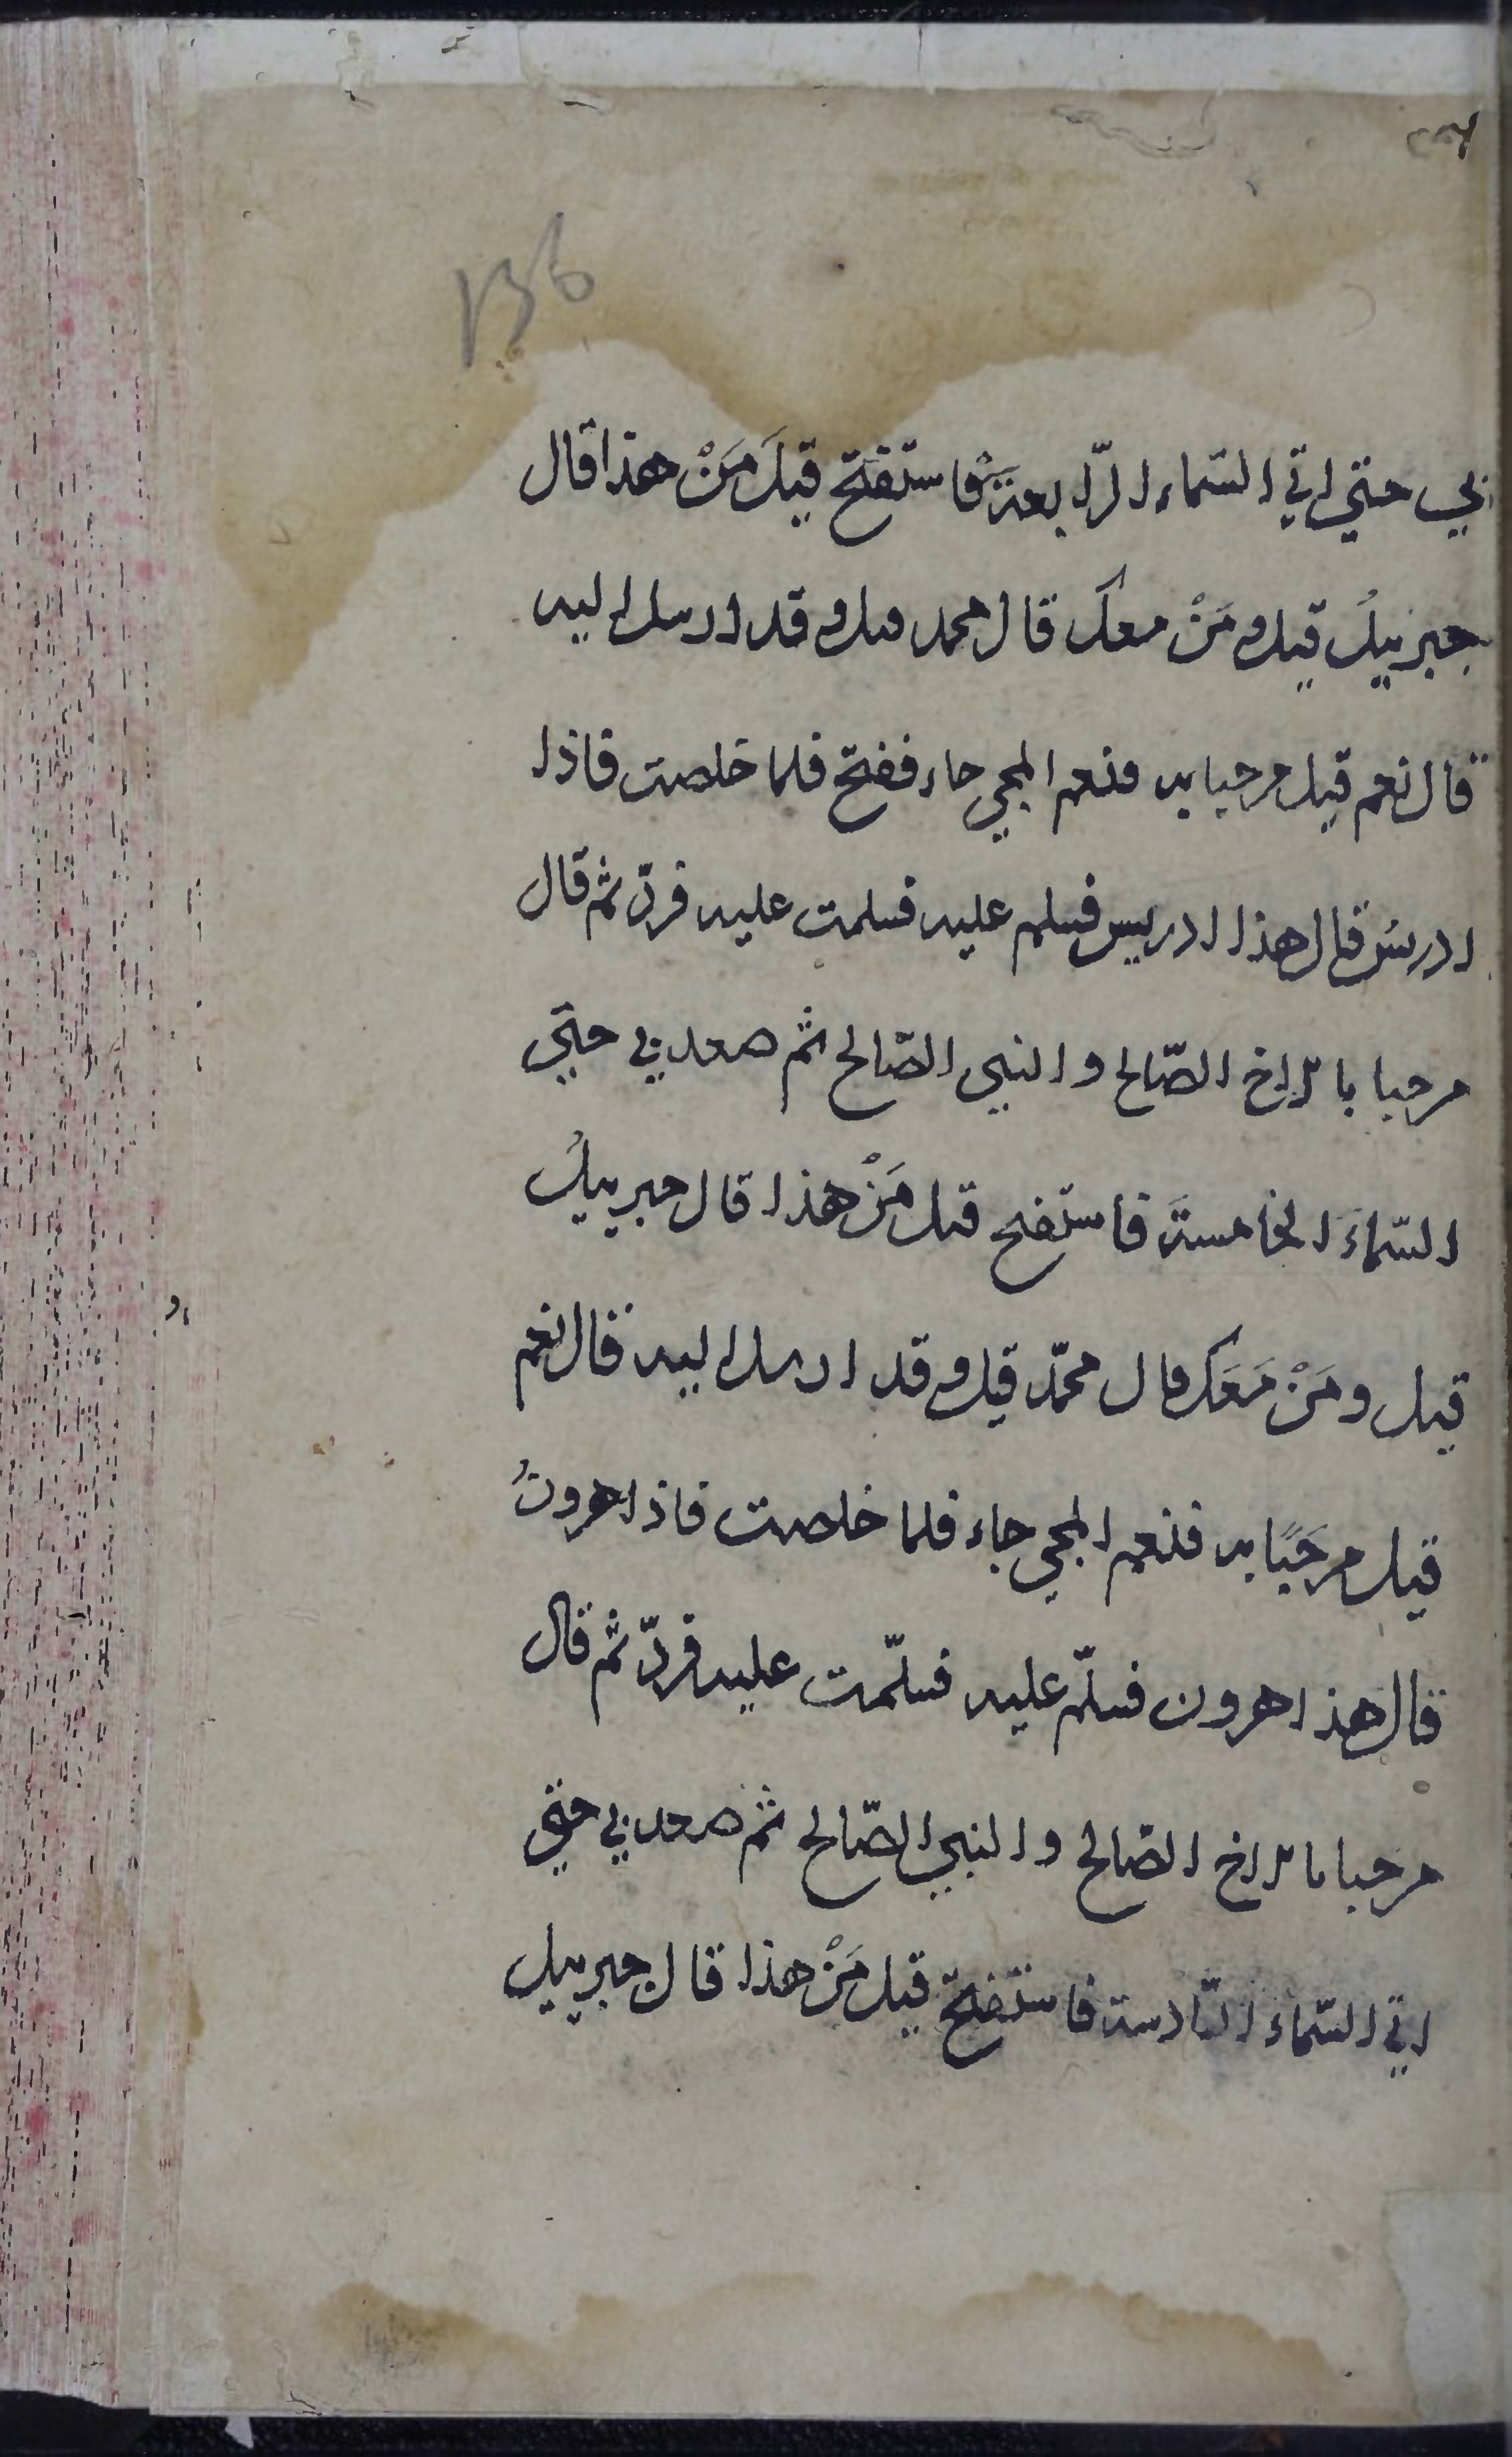 136
بي حتي اتي السّماء الرّابعة فاستفتح قيلَ مَنْ هذا قال
جبرئيلُ قيل ومَنْ معك قال محمد قيل وقد ارسل اليه
قال نعم قيل مرحبا به فنعم المجي جاء ففتح فلما خلصت فاذا
ادريسُ قال هذا ادريس فسلم عليه فسلمت عليه فردّ ثم قال
مرحبا بالاخ الصّالح والنبي الصّالح ثم صعد بي حتّي
السّماءَ الخامسةَ فاستفتح قيل مَنْ هذا قال جبرييلُ
قيل ومَنْ مَعَك قال محمّد قيل وقد ارسل اليه قال نعم
قيل مرحَبًا به فنعم المجي جاء فلما خلصت فاذا هرونُ
قال هذا هرون فسلّم عليه فسلّمت عليه فردّ ثم قال
مرحبا بالاخ الصّالح والنبي الصّالح ثم صعد بي حتي
اتي السّماء السّادسة فاستفتح قيل مَنْ هذا قال جبرييل